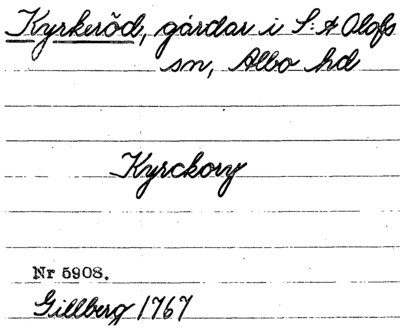 Kyrkeröd, gårdar i S:t Olofs
sn, Albo hd
Kyrckory
Nr 5908.
Gillberg 1767